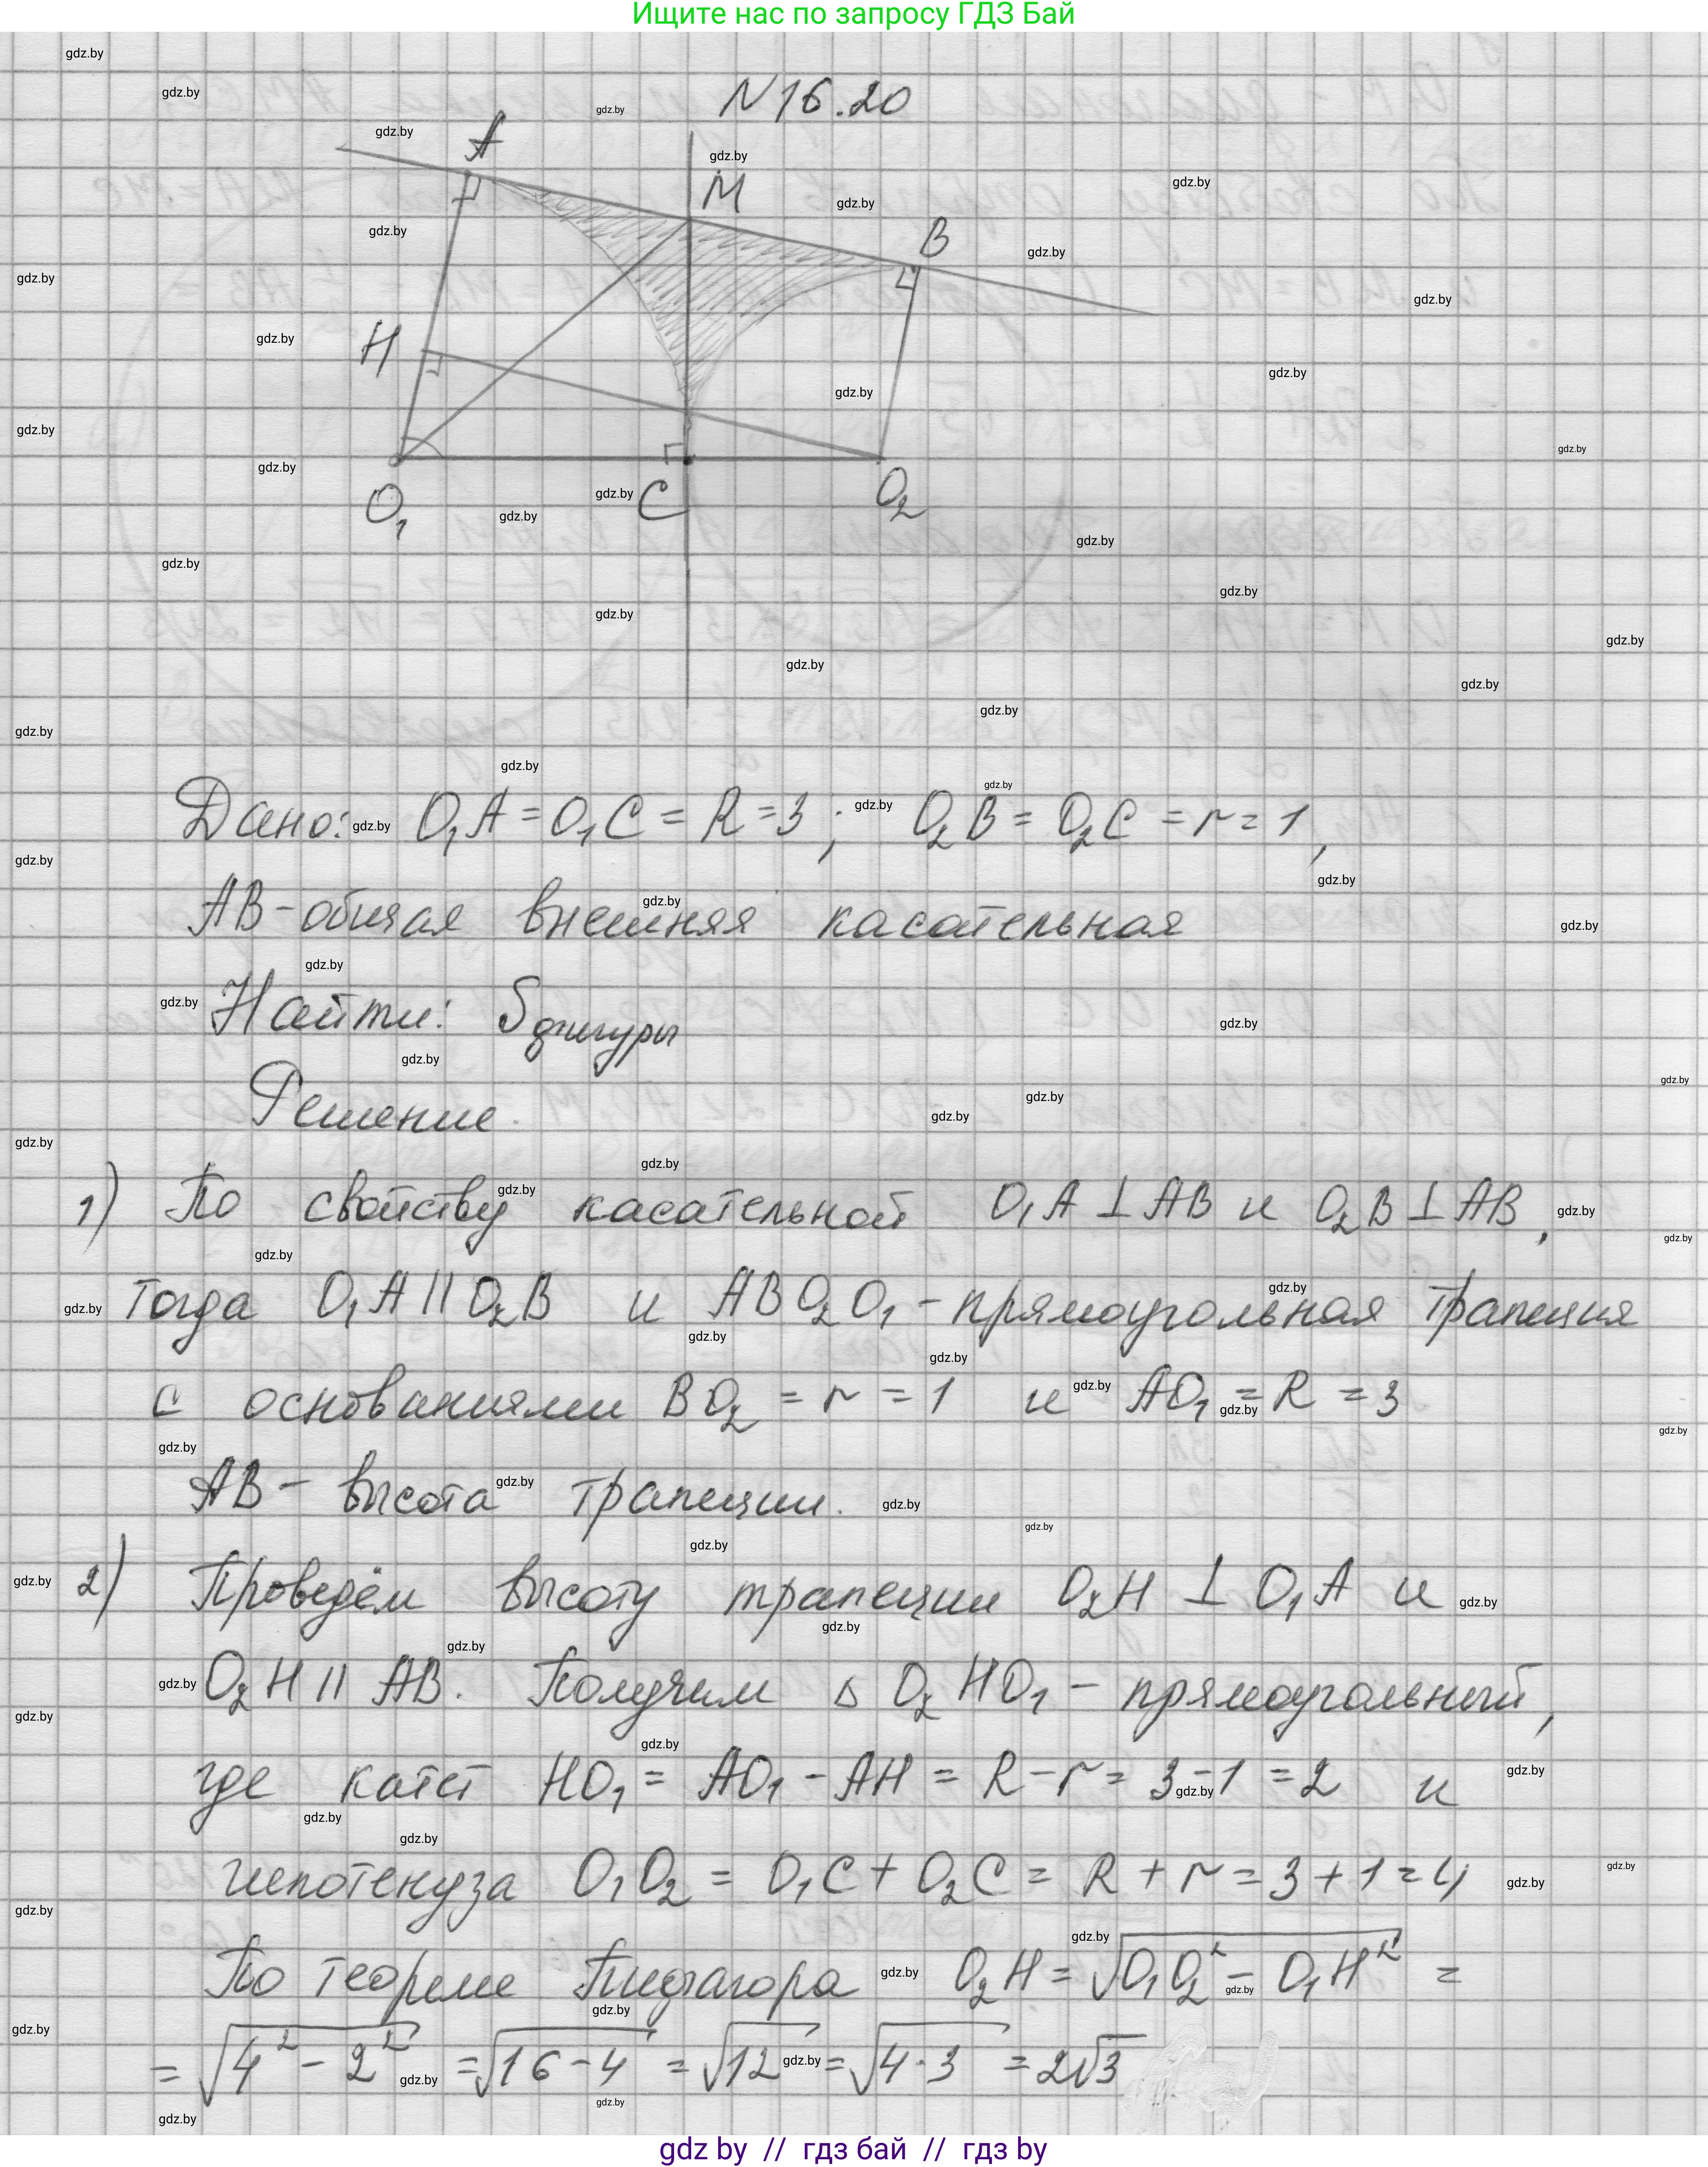 Ищите нас по запросу ГДЗ Бай
N16.20
A
M
B
H
O₁
C
O₂
Дано: O₁A = O₁C = R = 3 ; O₂B = O₂C = r = 1,
AB - общая внешняя касательная
Найти: S фигуры
Решение.
1) По свойству касательной O₁A ⊥ AB и O₂B ⊥ AB,
тогда O₁A || O₂B и ABO₂O₁ - прямоугольная трапеция
с основаниями BO₂ = r = 1 и AO₁ = R = 3
AB - высота трапеции.
2) Проведём высоту трапеции O₂H ⊥ O₁A и
O₂H || AB. Получим △ O₂HO₁ - прямоугольный,
где катет HO₁ = AO₁ - AH = R - r = 3 - 1 = 2 и
гипотенуза O₁O₂ = O₁C + O₂C = R + r = 3 + 1 = 4
По теореме Пифагора O₂H = √(O₁O₂² - O₁H²) =
= √(4² - 2²) = √(16 - 4) = √12 = √(4·3) = 2√3
gdz by // гдз бай // гдз by